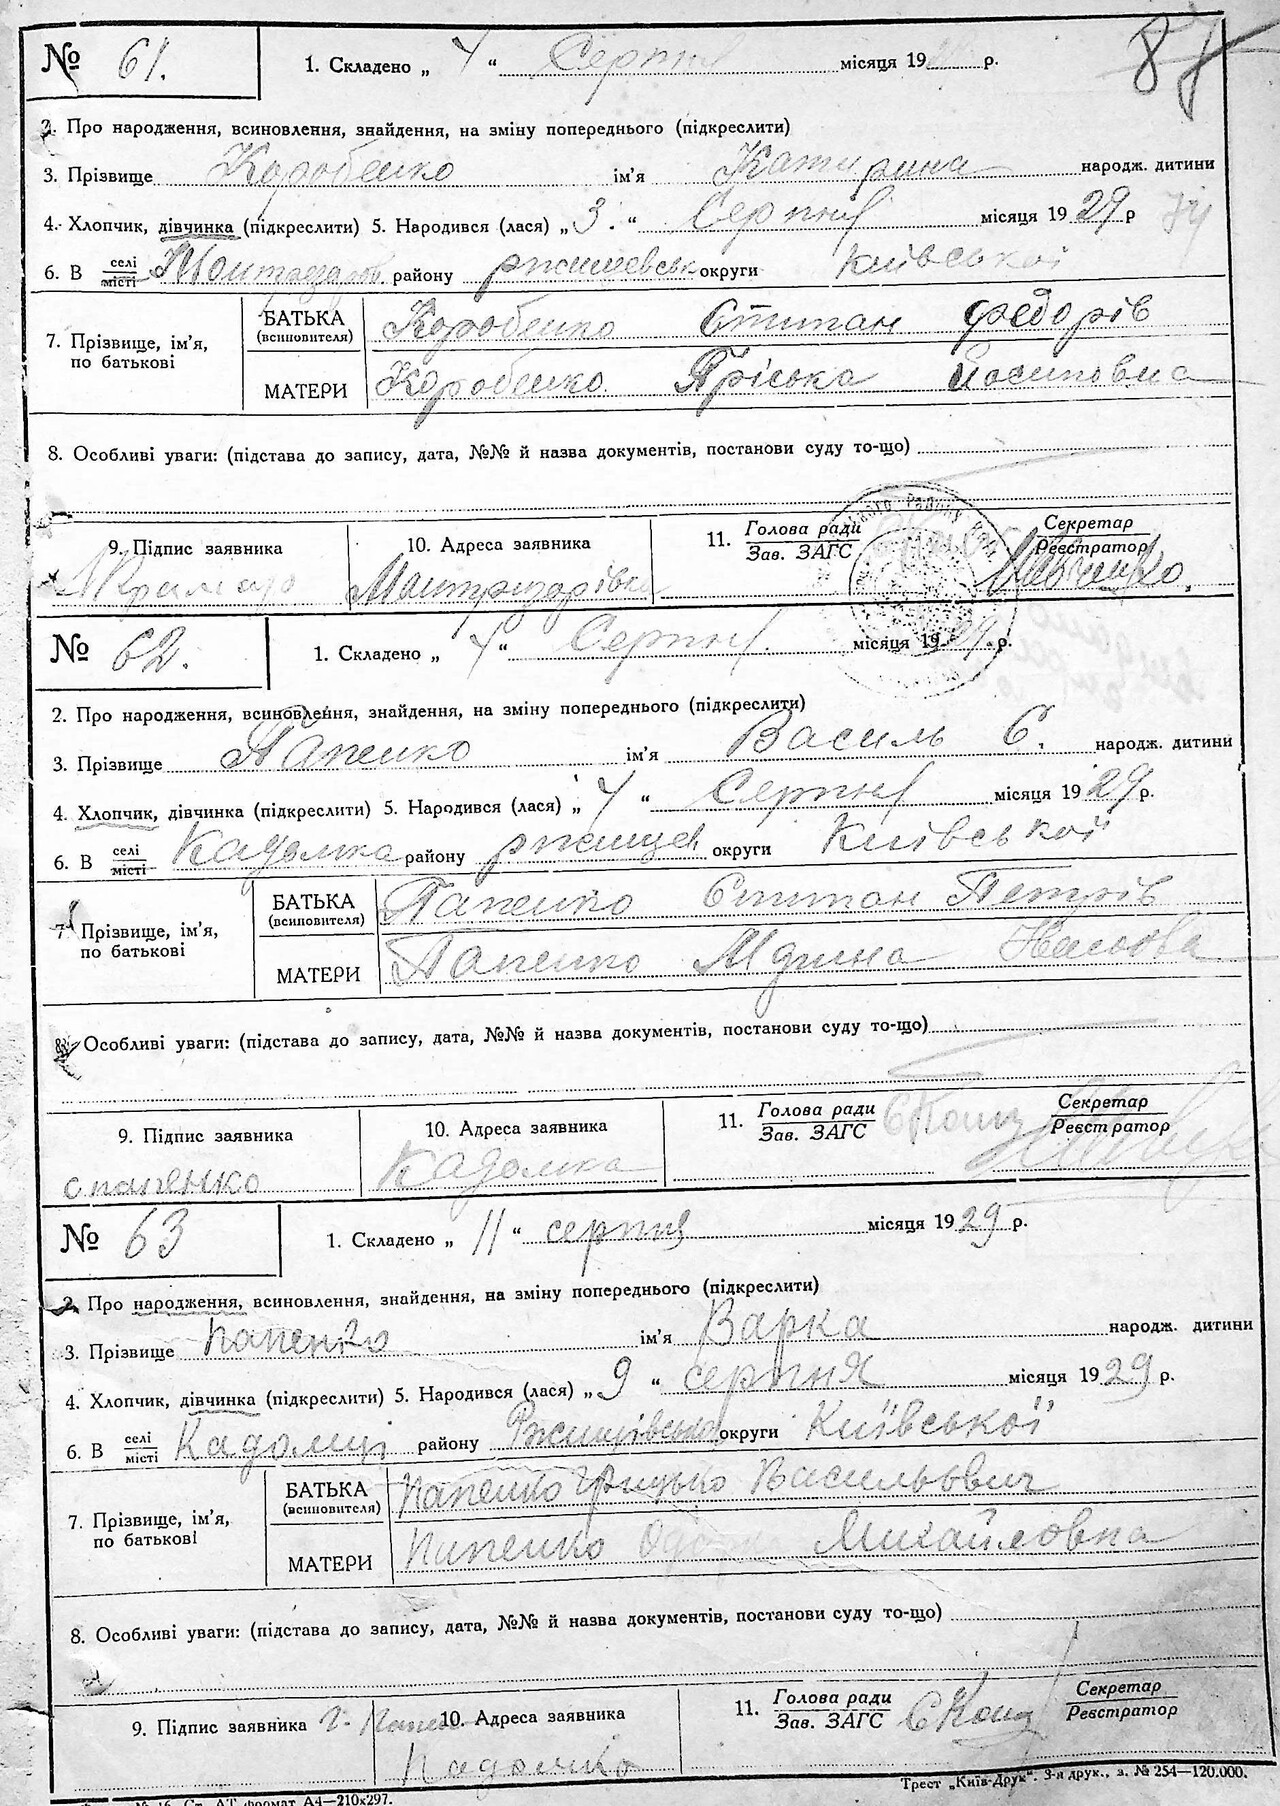 № 61. 1. Складено „ 4 “ Серпня місяця 19 р.
87
2. Про народження, всиновлення, знайдення, на зміну попереднього (підкреслити)
3. Прізвище Коробенко ім'я Катирина народж. дитини
4. Хлопчик, дівчинка (підкреслити) 5. Народився (лася) „ 3. “ Серпня місяця 19 29 р
6. В селі місті району ржищевськ округи Київської
7. Прізвище, ім'я, по батькові
БАТЬКА (всиновителя) Коробенко Степан Федорів
МАТЕРИ Коробенко Пріська Йосиповна
8. Особливі уваги: (підстава до запису, дата, №№ й назва документів, постанови суду то-що)
9. Підпис заявника 10. Адреса заявника 11. Голова ради Зав. ЗАГС Секретар Реєстратор
№ 62. 1. Складено „ 4 “ Серпня місяця 19 29 р.
2. Про народження, всиновлення, знайдення, на зміну попереднього (підкреслити)
3. Прізвище Папенко ім'я Василь С. народж. дитини
4. Хлопчик, дівчинка (підкреслити) 5. Народився (лася) „ 4 “ Серпня місяця 19 29 р.
6. В селі місті Кадомка району ржищев округи Київської
7. Прізвище, ім'я, по батькові
БАТЬКА (всиновителя) Папенко Степан Петрів
МАТЕРИ Папенко
8. Особливі уваги: (підстава до запису, дата, №№ й назва документів, постанови суду то-що)
9. Підпис заявника 10. Адреса заявника 11. Голова ради Зав. ЗАГС Секретар Реєстратор
с папенко Кадомка
№ 63 1. Складено „ 11 “ серпня місяця 19 29 р.
2. Про народження, всиновлення, знайдення, на зміну попереднього (підкреслити)
3. Прізвище Папенко ім'я Варка народж. дитини
4. Хлопчик, дівчинка (підкреслити) 5. Народився (лася) „ 9 “ серпня місяця 19 29 р.
6. В селі місті Кадомці району Ржищівська округи Київської
7. Прізвище, ім'я, по батькові
БАТЬКА (всиновителя) Папенко Грицько Васильович
МАТЕРИ Папенко Михайловна
8. Особливі уваги: (підстава до запису, дата, №№ й назва документів, постанови суду то-що)
9. Підпис заявника 10. Адреса заявника 11. Голова ради Зав. ЗАГС Секретар Реєстратор
Кадомка
Трест „Київ-Друк“. 3-я друк., з. № 254—120.000.
Ст. АТ формат А4—210х297.